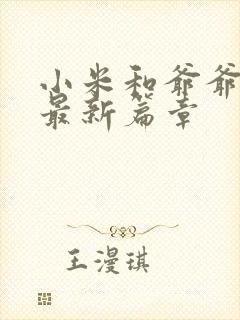 小米和爷爷
最新篇章
王漫琪